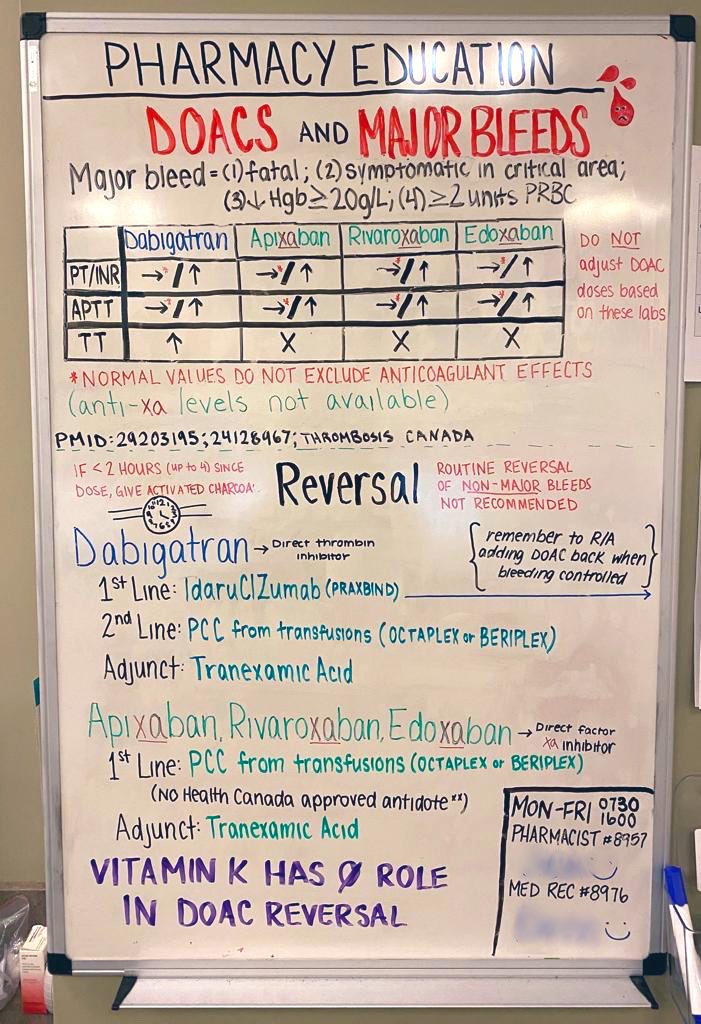 PHARMACY EDUCATION
DOACS AND MAJOR BLEEDS
Major bleed = (1) fatal; (2) symptomatic in critical area;
(3) ↓ Hgb ≥ 20g/L; (4) ≥ 2 units PRBC
Dabigatran Apixaban Rivaroxaban Edoxaban
PT/INR →*/↑ →*/↑ →*/↑ →*/↑
APTT →*/↑ →*/↑ →*/↑ →*/↑
TT ↑ X X X
DO NOT
adjust DOAC
doses based
on these labs
*NORMAL VALUES DO NOT EXCLUDE ANTICOAGULANT EFFECTS
(anti-xa levels not available)
PMID: 29203195; 24128967; THROMBOSIS CANADA
IF < 2 HOURS (UP to 4) SINCE
DOSE, GIVE ACTIVATED CHARCOA
Reversal
ROUTINE REVERSAL
OF NON-MAJOR BLEEDS
NOT RECOMMENDED
Dabigatran → Direct thrombin
inhibitor
remember to R/A
adding DOAC back when
bleeding controlled
1st Line: IdaruCIZumab (PRAXBIND)
2nd Line: PCC from transfusions (OCTAPLEX or BERIPLEX)
Adjunct: Tranexamic Acid
Apixaban, Rivaroxaban, Edoxaban → Direct factor
xa inhibitor
1st Line: PCC from transfusions (OCTAPLEX or BERIPLEX)
(No Health Canada approved antidote**)
Adjunct: Tranexamic Acid
VITAMIN K HAS Ø ROLE
IN DOAC REVERSAL
MON-FRI 0730
1600
PHARMACIST #8957
MED REC #8976